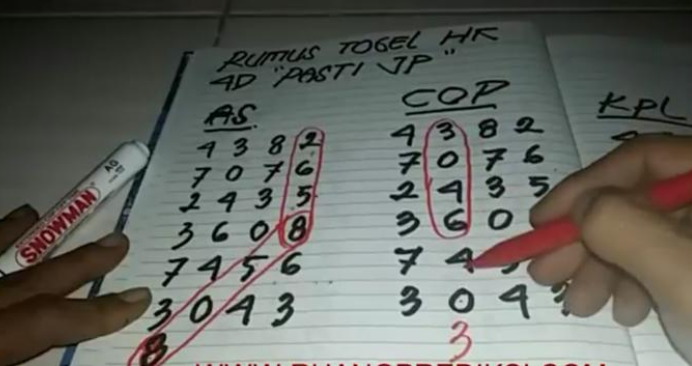 RUMUS TOGEL HK
4D "PASTI JP"
AS
4 3 8 2
7 0 7 6
2 4 3 5
3 6 0 8
7 4 5 6
3 0 4 3
8
COP
4 3 8 2
7 0 7 6
2 4 3 5
3 6 0
7 4
3 0 4
3
KPL
SNOWMAN